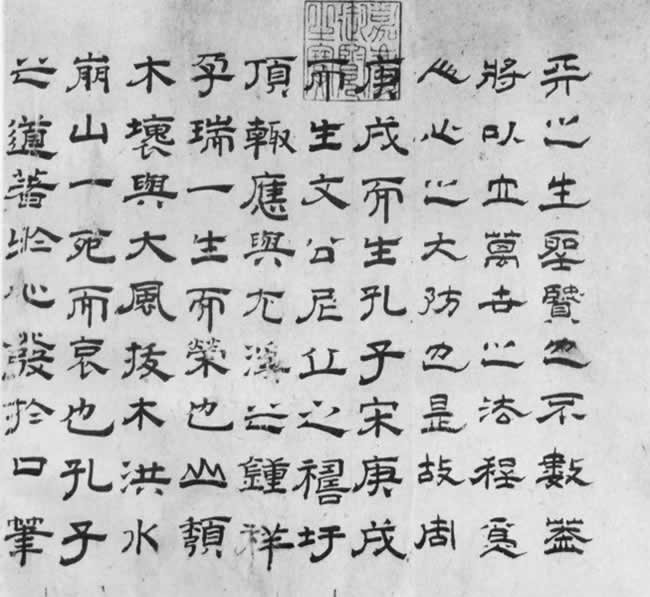 天之生聖賢也不數蓋
將以立萬世之法程爲
人心之大防也是故周
庚戌而生孔子宋庚戌
而生文公尼丘之禱圩
頂輙應與尤溪之鍾祥
孕瑞一生而榮也山頹
木壞與大風拔木洪水
崩山一死而哀也孔子
之道著於心發於口筆